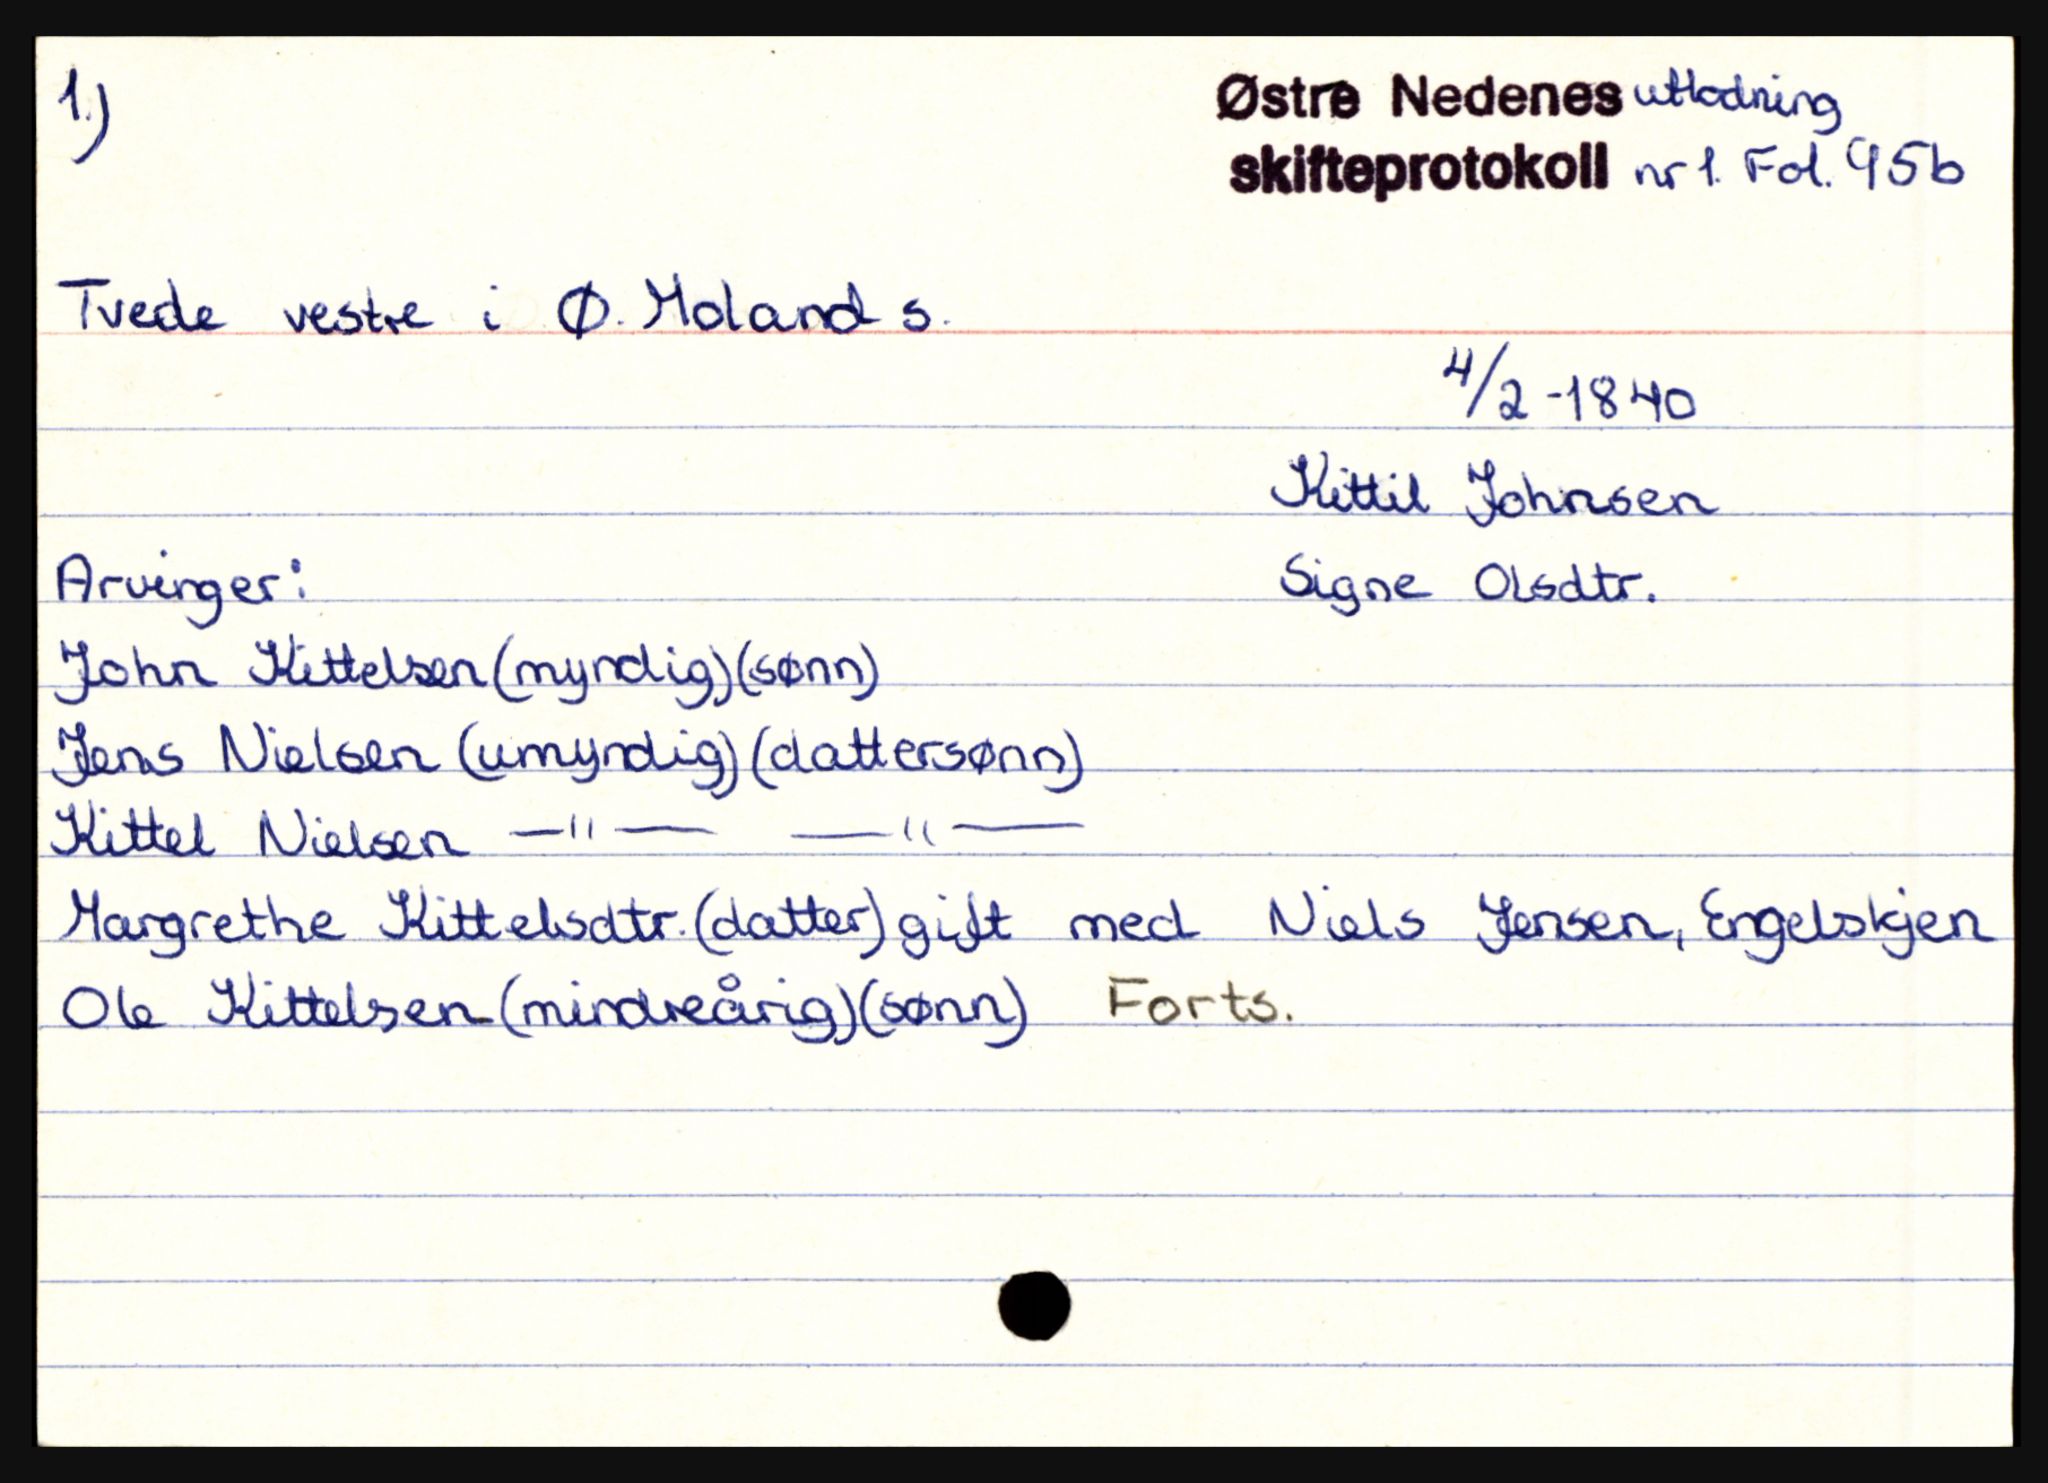 1.)
Østre Nedenes utlodning
skifteprotokoll nr 1. Fol. 95b
Tvede vestre i Ø. Moland s.
4/2-1840
Kittil Johnsen
Arvinger: Signe Olsdtr.
John Kittelsen (myndig) (sønn)
Jens Nielsen (umyndig) (dattersønn)
Kittel Nielsen —"— —"—
Margrethe Kittelsdtr. (datter) gift med Niels Jensen, Engelskjen
Ole Kittelsen (mindreårig) (sønn) Forts.